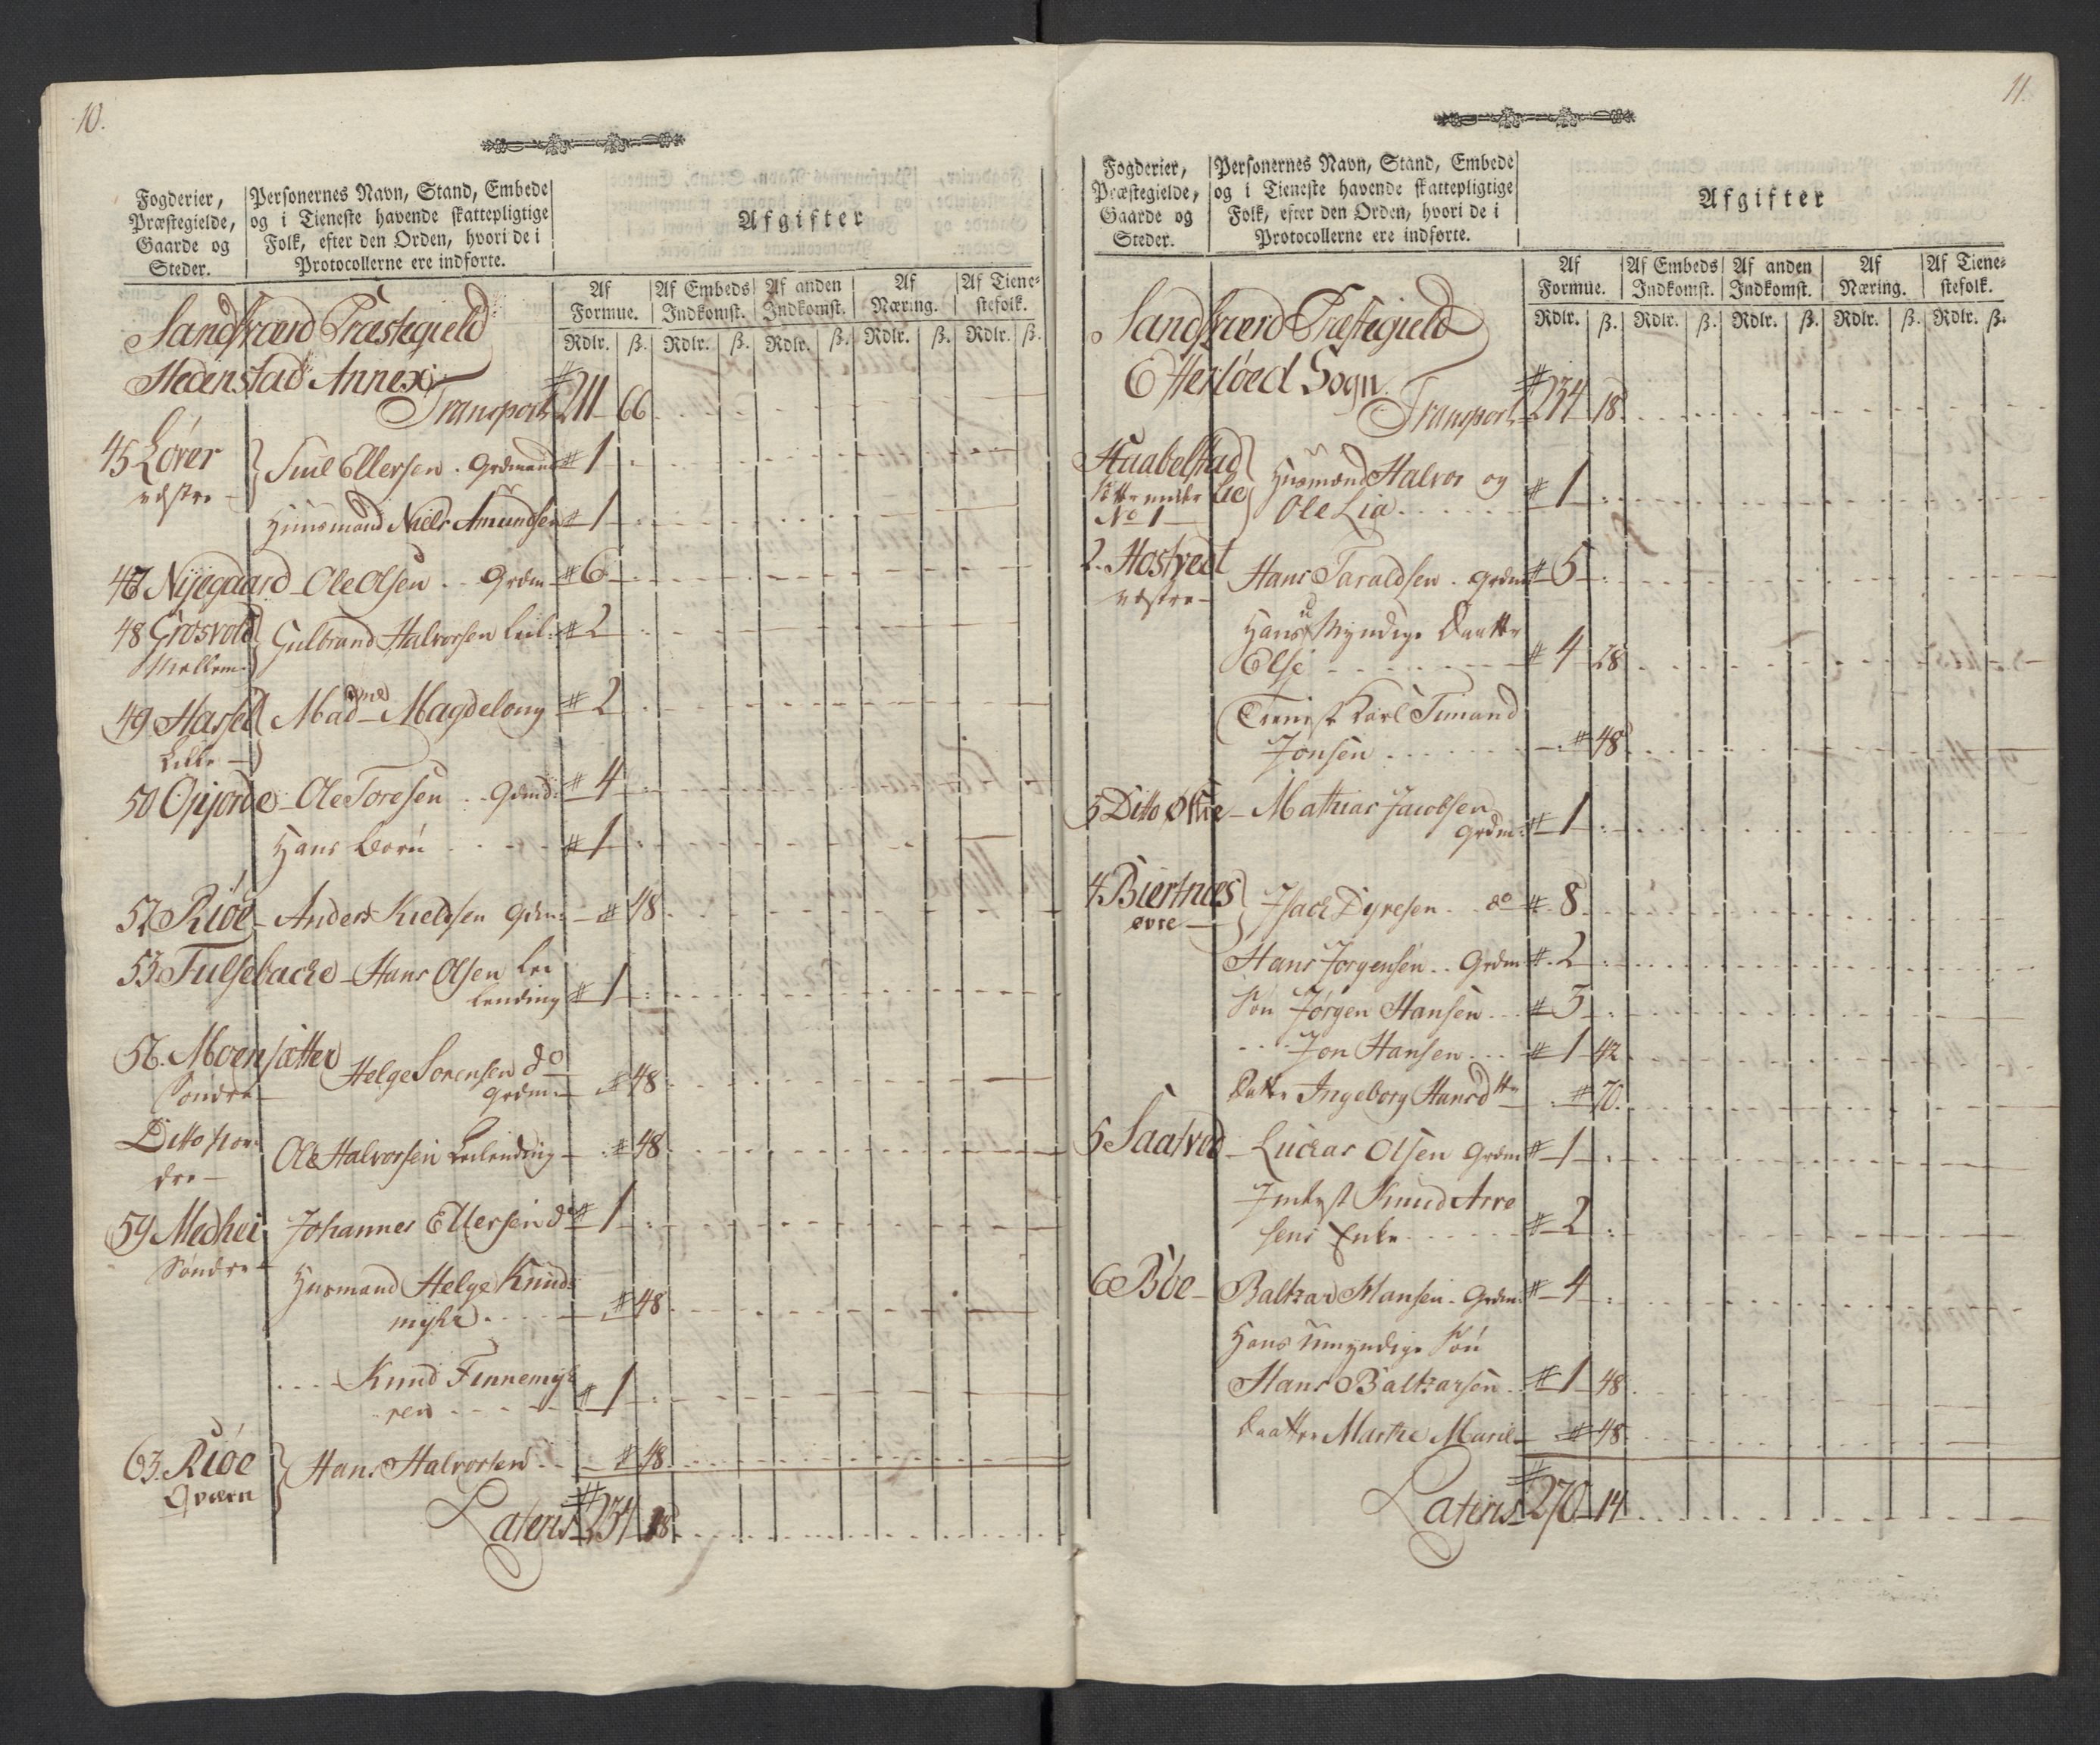 10.
Fogderier,
Præstegielde,
Gaarde og
Steder.
Personernes Navn, Stand, Embede
og i Tieneste havende skattepligtige
Folk, efter den Orden, hvori de i
Protocollerne ere indførte.
Afgifter
Af Formue. Af Embeds Indkomst. Af anden Indkomst. Af Næring. Af Tienestefolk.
Rdlr. ß. Rdlr. ß. Rdlr. ß. Rdlr. ß. Rdlr. ß.
Sandsværd Præstegield
Hedenstad Annex
Transport 211 66
45 Lover vestre Siul Ellersen. Grdmand 1
Huusmand Niels Amundsen 1
Nijegaard Ole Olsen Grdm 6
48 Grosvold Mellem Gulbrand Halvorsen Leil: 2
49 Hassel Lille Mad Magdelong 2
50 Opjorde Ole Toresen 4
Hans Børn 1
52 Riøe Anders Kieldsen 48
53 Fulsebache Hans Olsen Lei
lending 1
56. Moensætter Søndre Helge Sørensen do
Grdm 48
Ditto Nor
dre Ole Halvorsen Leilending 48
59 Medhei Søndre Johannes Ellersen do 1
Husmand Helge Knuds
myhr 48
Knud Finnemyh
ren 1
63. Riøe Qværn Hans Halvorsen 48
Lateris 234 18
11.
Fogderier,
Præstegielde,
Gaarde og
Steder.
Personernes Navn, Stand, Embede
og i Tieneste havende skattepligtige
Folk, efter den Orden, hvori de i
Protocollerne ere indførte.
Afgifter
Af Formue. Af Embeds Indkomst. Af anden Indkomst. Af Næring. Af Tienestefolk.
Rdlr. ß. Rdlr. ß. Rdlr. ß. Rdlr. ß. Rdlr. ß.
Sandsværd Præstegield
Efterløed Sogn
Transport 234 18
Lie
No 1 Husmænd Halvor og
Ole Lia 1
2. Hostvedt vestre Hans Taraldsen. Grdm 5
Hans Umyndige Daatter
Else 4 28
Tienist Karl Simand
Jonsen 48
3 Ditto Østre Mathias Jacobsen
Grdm: 1
4. Biertnæs øvre Isach Dyresen do 8
Hans Jorgensen Grdm 2
Søn Jørgen Hansen 3
Jon Hansen 1 42
Datter Ingeborg Hansdtr 70
5 Saatved Luckas Olsen Grdm 1
Inderst Knud Arre
sens Enke 2
6 Bøe Baltzar Hansen Grdm: 4
Hans Umyndige Søn
Hans Baltzarsen 1 48
Daatter Marthe Marie 48
Lateris 270 14